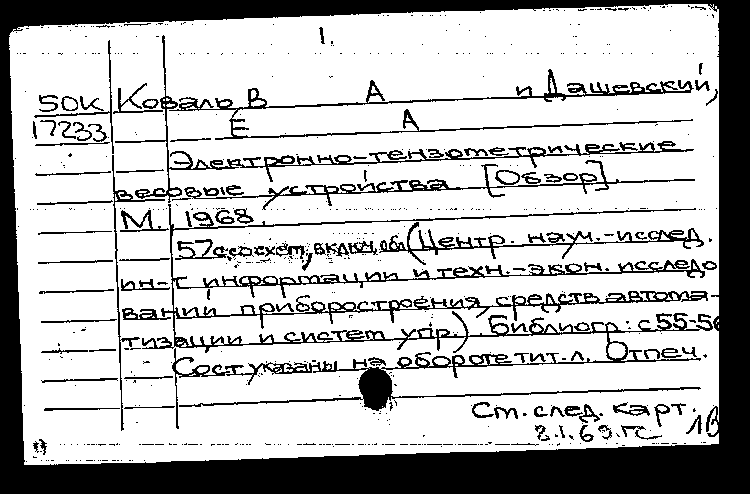 1.
50К Коваль В А и Дашевский,
17233 Е А
Электронно-тензометрические
весовые устройства. [Обзор].
М., 1968.
57 с со схем, включ. обл (Центр. науч.-исслед.
ин-т информации и техн.-экон. исследо
ваний приборостроения, средств автома-
тизации и систем упр.) Библиогр: с 55-56
Сост указаны на обороте тит. л. Отпеч.
См. след. карт.
8.1.69.ГС 1В